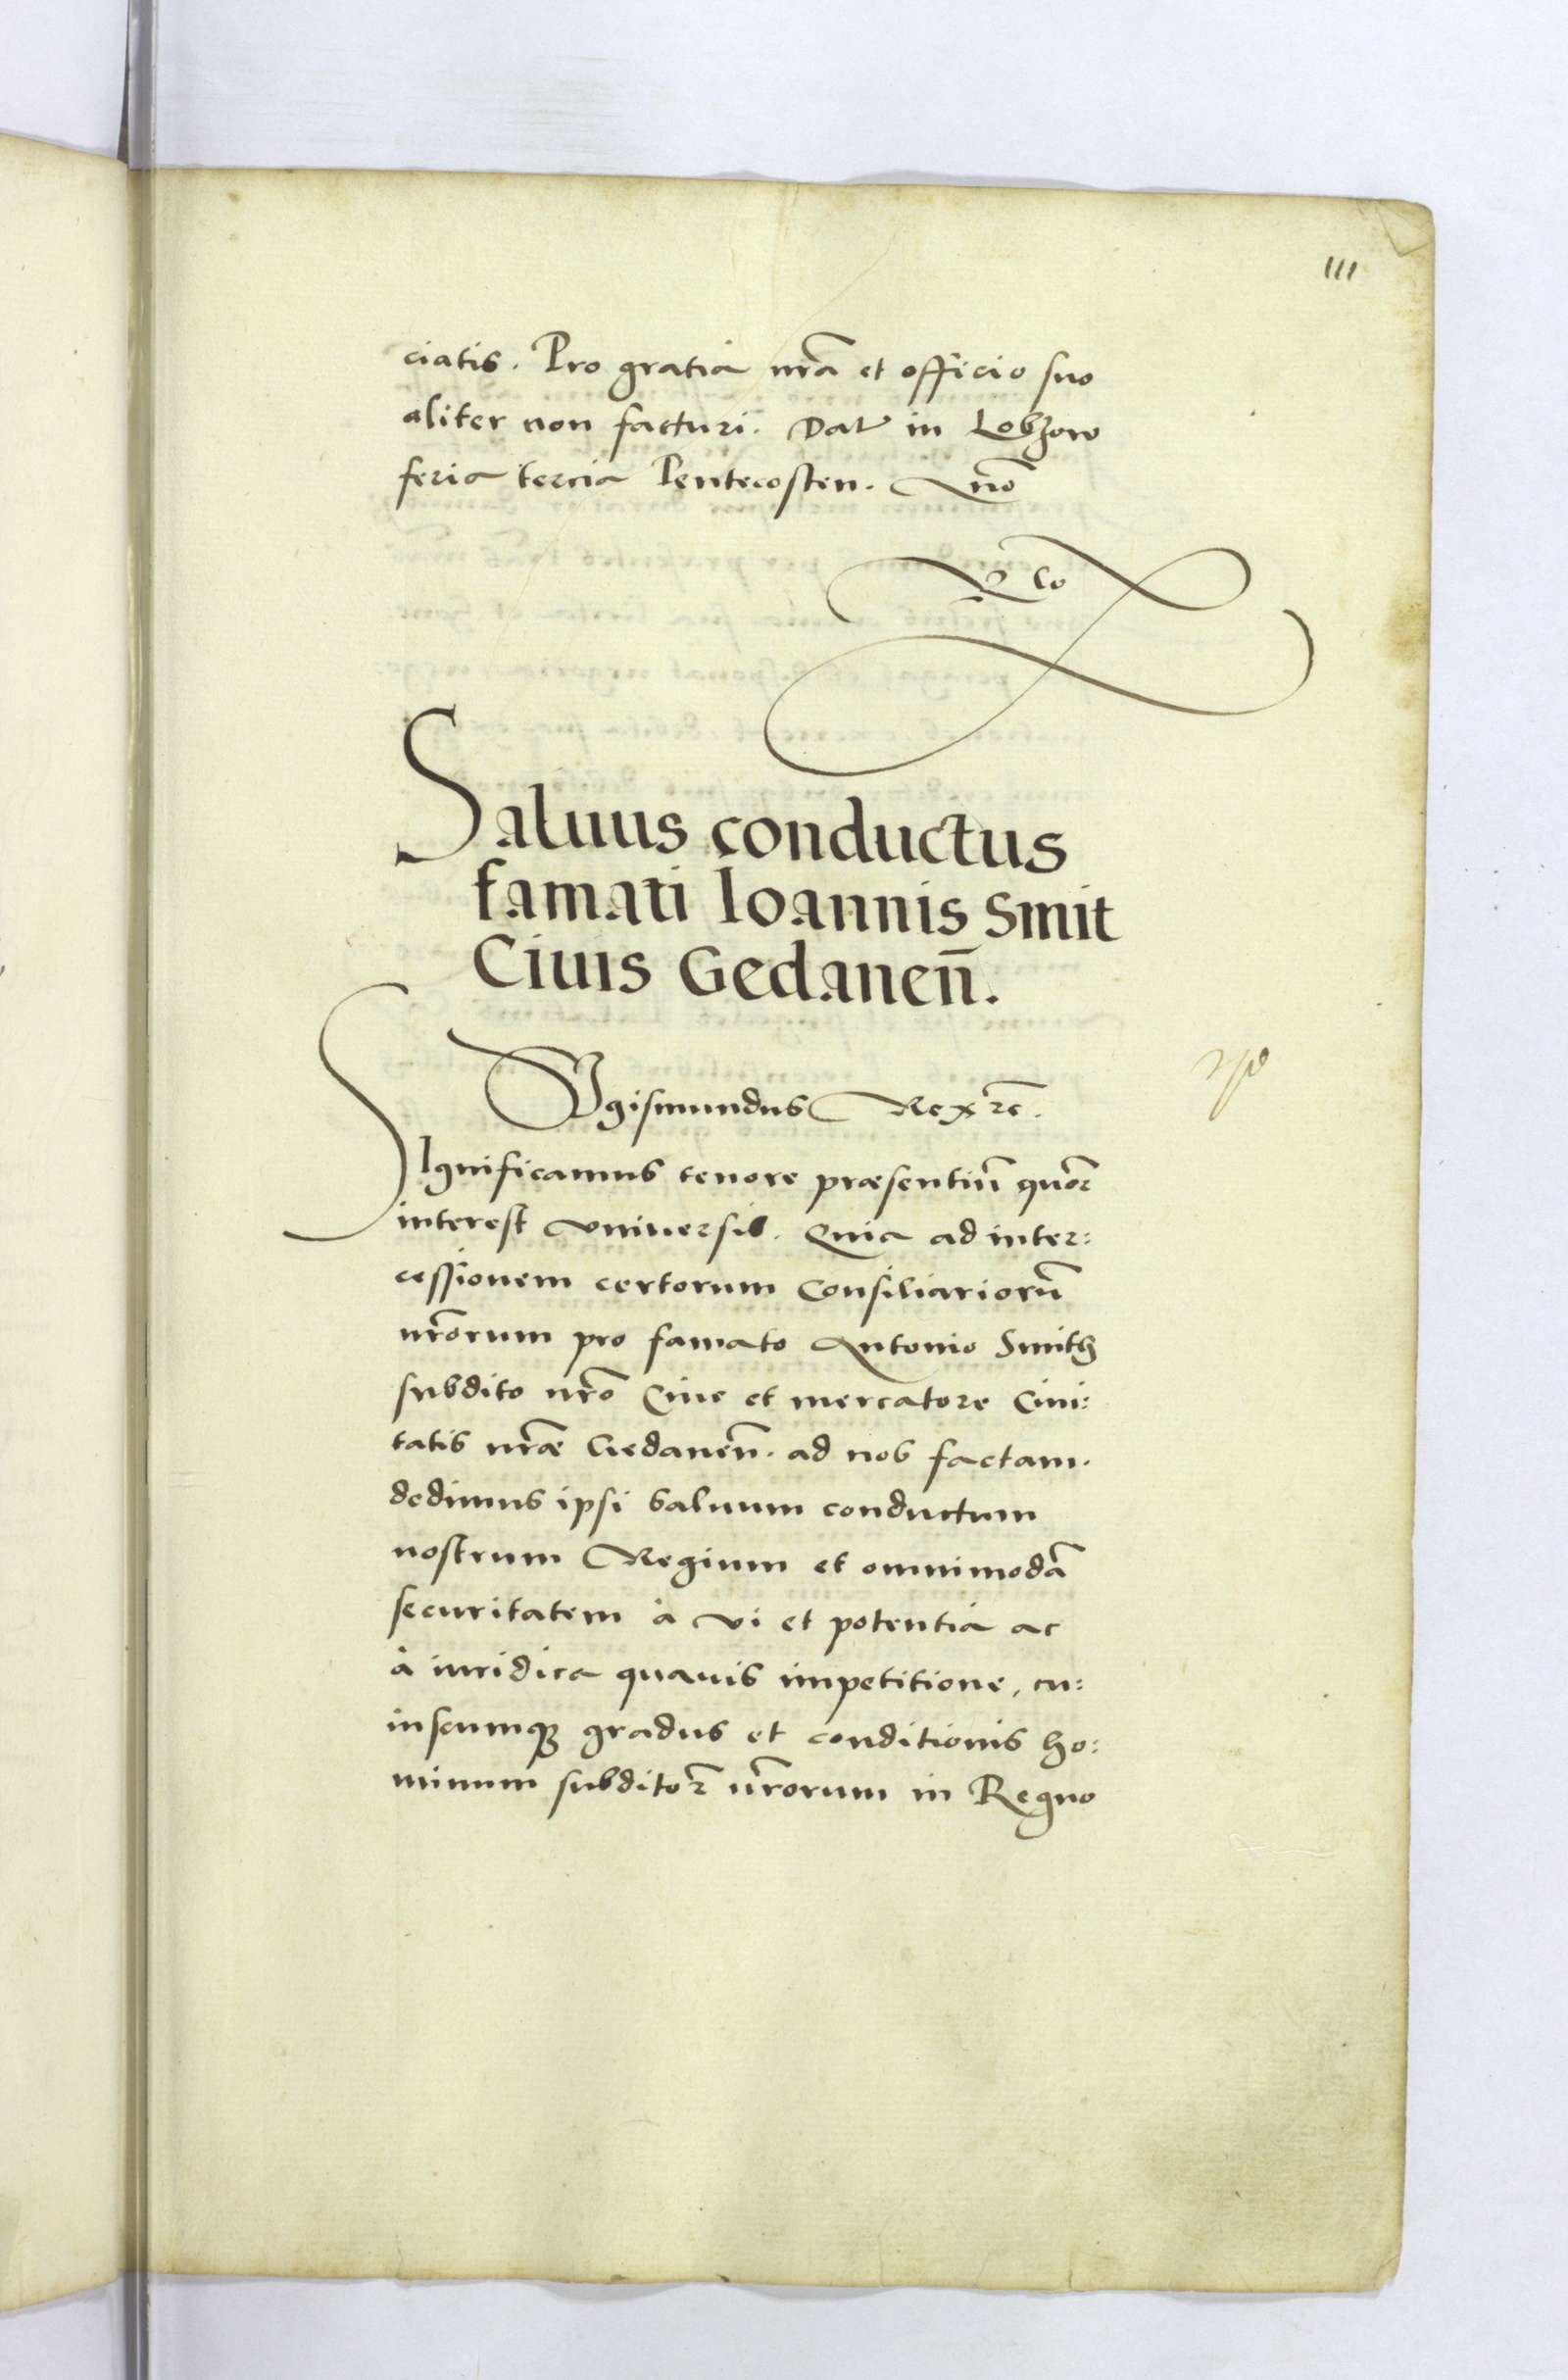 111
ciatis. Pro gratia nrã et officio suo
aliter non facturi. Dat in Lobzow
feria tercia Pentecosten. Anño
Saluus conductus
famati Ioannis Smit
Ciuis Gedaneñ.
Sigismundus Rex etc.
Significamus tenore præsentiũ quoꝝ
interest vniuersis. Quia ad inter:
cessionem certorum Consiliariorũ
nrõrum pro famato Antonio Smith
subdito nrõ Ciue et mercatore Ciui:
tatis nrãe Gedaneñ. ad nos factam.
dedimus ipsi saluum conductum
nostrum Regium et omnimodã
securitatem à vi et potentia ac
à iuridica quauis impetitione, cu:
iuscumqꝫ gradus et conditionis ho:
minum subditoꝝ nrõrum in Regno